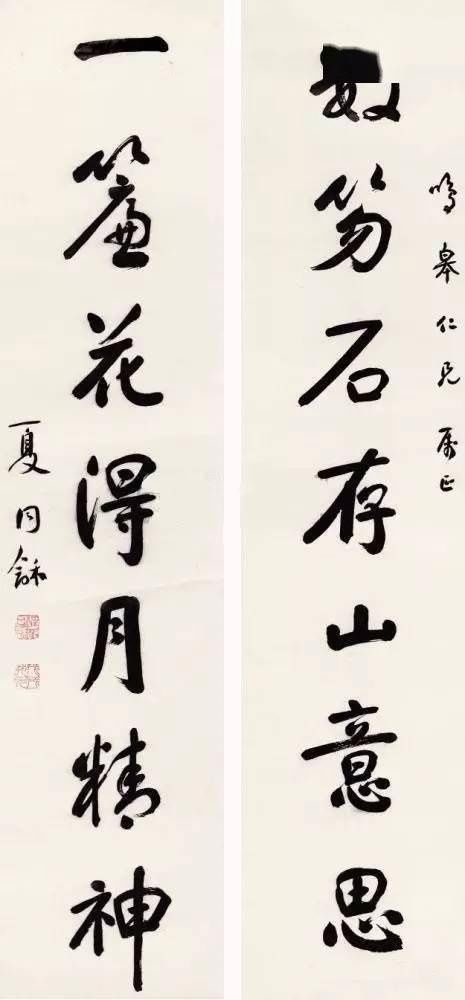 鳴皋仁兄屬正
笏石存山意思
一簾花得月精神
夏同龢